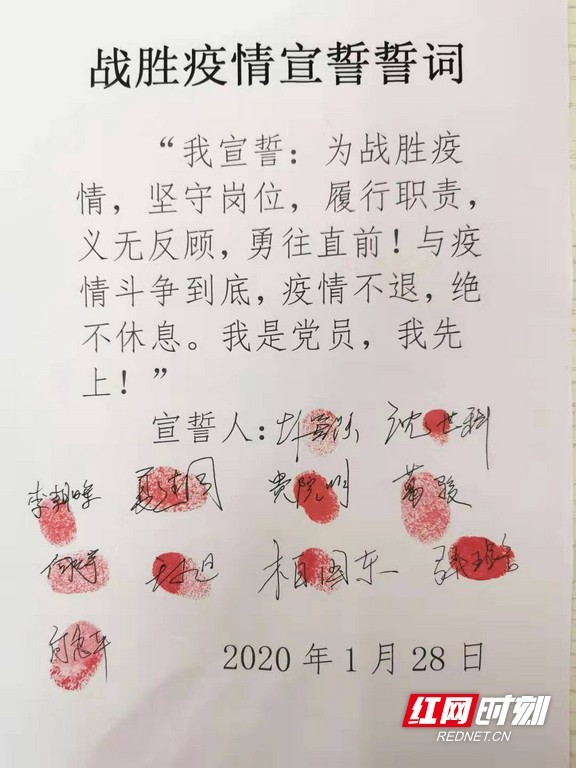 战胜疫情宣誓誓词
“我宣誓：为战胜疫
情，坚守岗位，履行职责，
义无反顾，勇往直前！与疫
情斗争到底，疫情不退，绝
不休息。我是党员，我先
上！”
宣誓人：
李朝晖
相国东
2020年1月28日
红网时刻
REDNET.CN